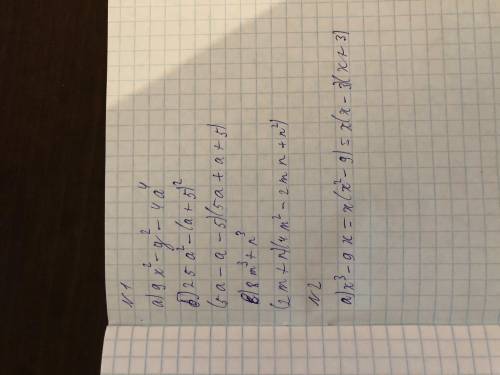 N1
а) 9x² - y² - 4a⁴
б) 25a² - (a + 5)²
(5a - a - 5)(5a + a + 5)
в) 8m³ + n³
(2m + n)(4m² - 2mn + n²)
N2
а) x³ - 9x = x(x² - 9) = x(x - 3)(x + 3)